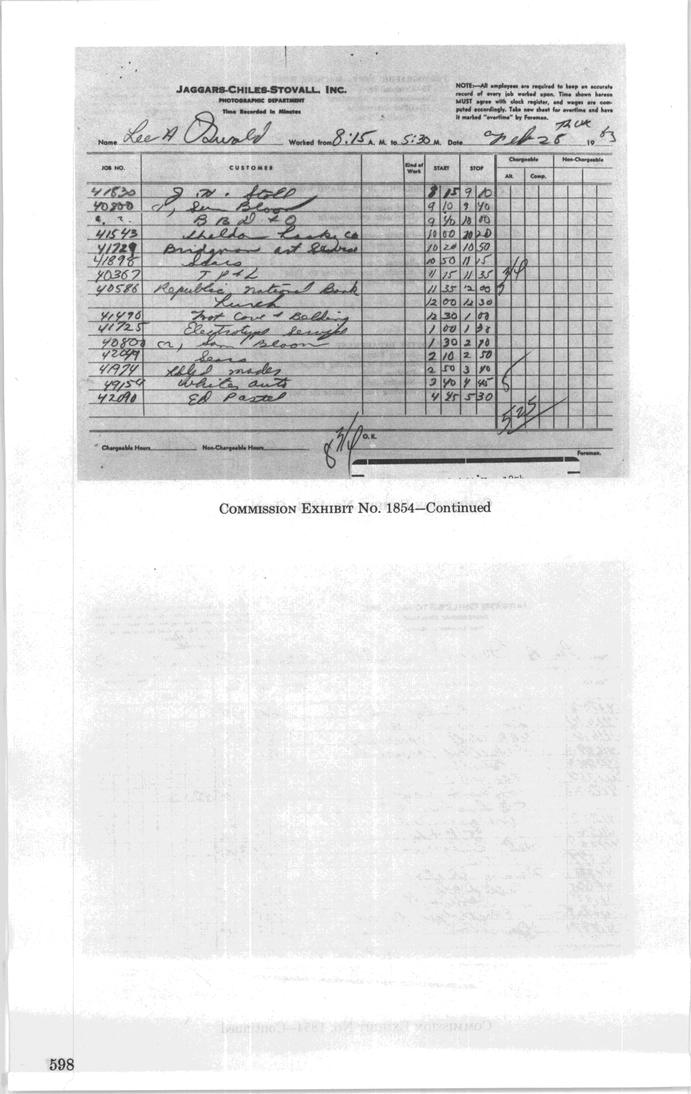 JAGGARS-CHILES-STOVALL, INC.
PHOTOGRAPHIC DEPARTMENT
Time Recorded in Minutes
NOTE:—All employees are required to keep an accurate
record of every job worked upon. Time shown hereon
MUST agree with clock register, and wages are com-
puted accordingly. Take new sheet for overtime and have
it marked "overtime" by Foreman.
Name Lee H Oswald Worked from 8:15 A. M. to 5:30 M. Date Feb 28 Thur 1963
JOB NO. CUSTOMER Kind of Work START STOP Chargeable Non-Chargeable
Alt. Comp.
41830 J. W. Stoll 8 15 9 10
40800 Sam Bloom 9 10 9 40
B B D & O 9 40 10 00
41543 Sheldon 10 00 10 20
41729 Bridgman art Service 10 20 10 50
41898 Sears 10 50 11 15
40367 T P & L 11 15 11 35
40586 Republic National Bank 11 35 12 00
Lunch 12 00 12 30
41490 Foot Cone & Belding 12 30 1 00
41725 Electrotype Service 1 00 1
40800 Sam Bloom 1 30 2 10
42049 Sears 2 10 2 50
41974 2 50 3 40
49154 White auto 3 40 4 45
42090 Ed Pastel 4 45 5 30
Chargeable Hours Non-Chargeable Hours 8 3/4 O.K. Foreman.
COMMISSION EXHIBIT No. 1854—Continued
598